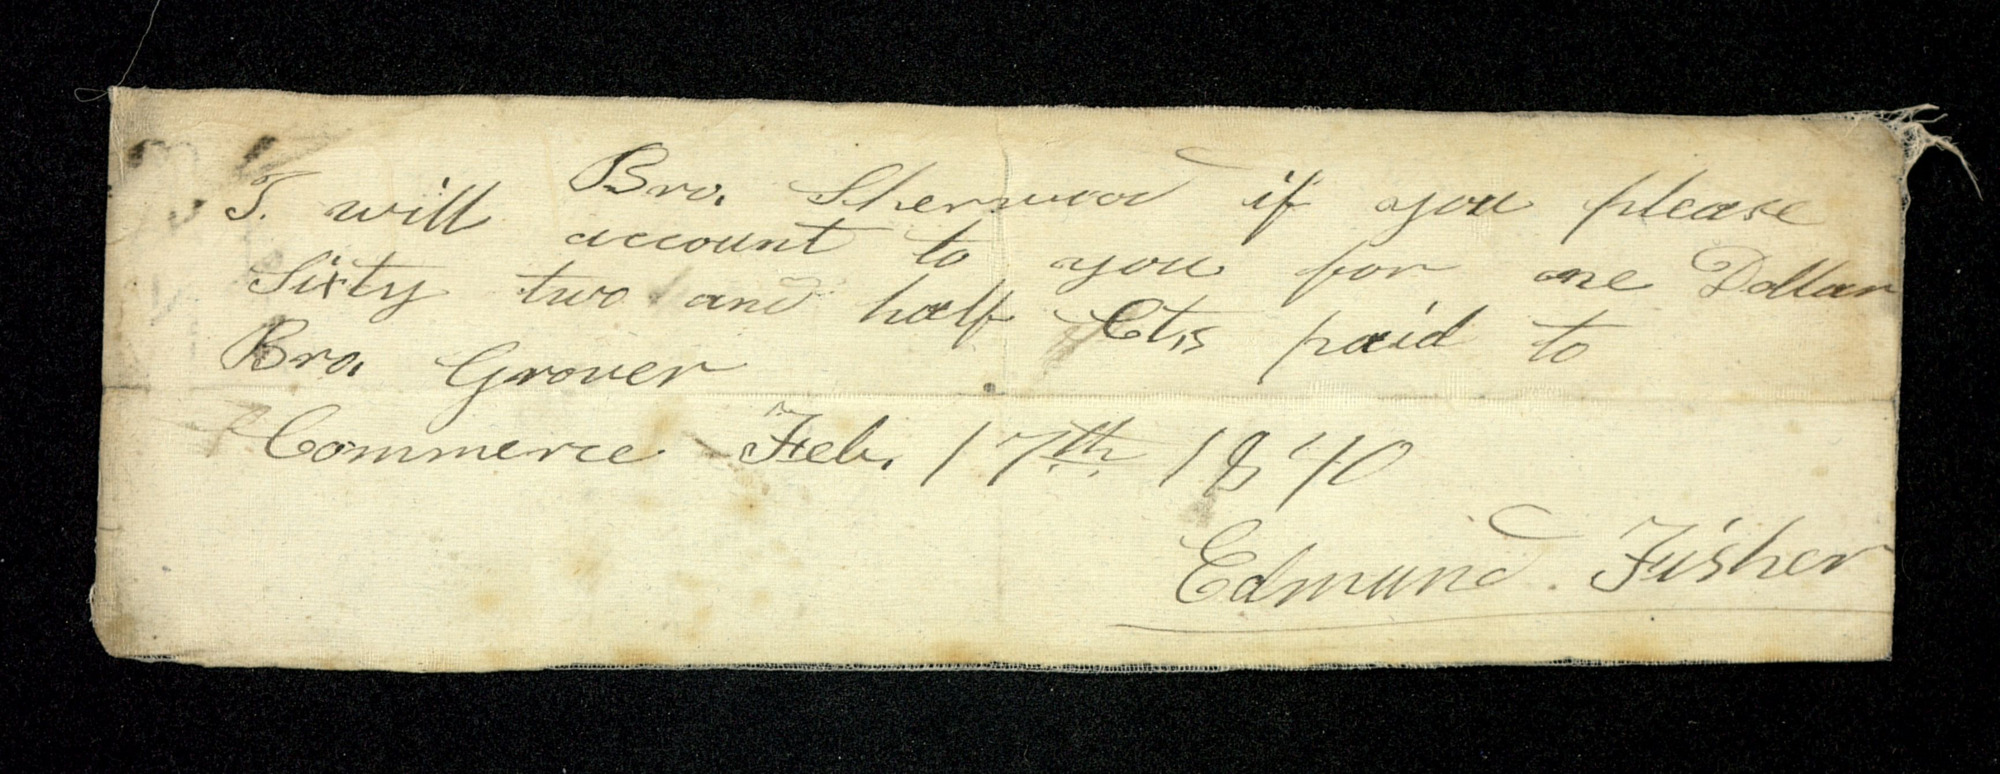 Bro. Sherwood if you please
I. will account to you for one Dollar
Sixty two and half Cts paid to
Bro. Grover
Commerce Feb. 17th 1840
Edmund Fisher